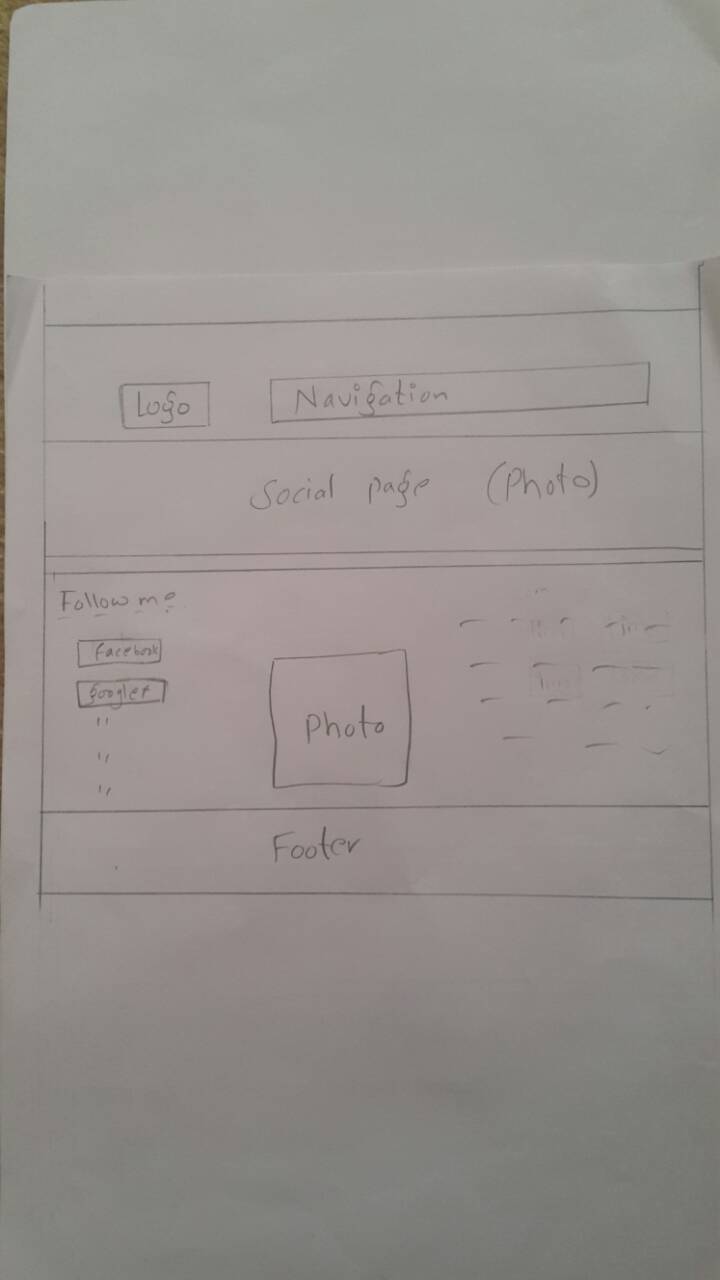 Logo
Navigation
Social page (Photo)
Follow me
facebook
google+
"
"
"
Photo
Footer